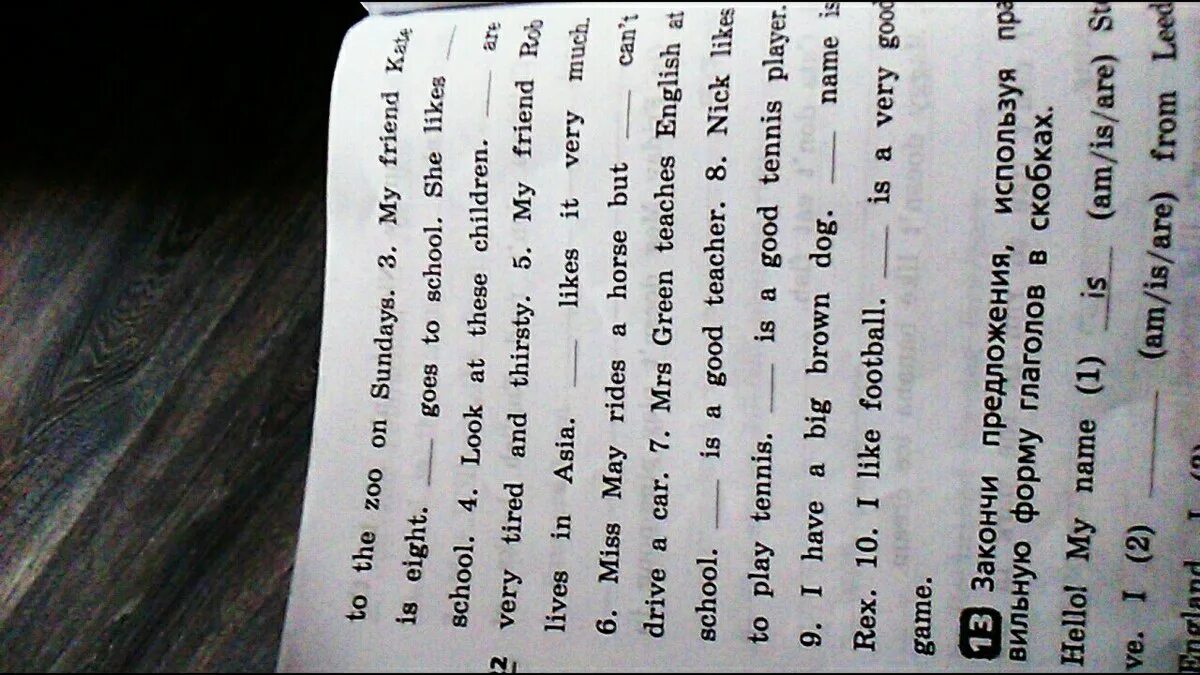 to the zoo on Sundays. 3. My friend Kate
is eight. ___ goes to school. She likes ___
school. 4. Look at these children. ___ are
very tired and thirsty. 5. My friend Rob
lives in Asia. ___ likes it very much.
6. Miss May rides a horse but ___ can't
drive a car. 7. Mrs Green teaches English at
school. ___ is a good teacher. 8. Nick likes
to play tennis. ___ is a good tennis player.
9. I have a big brown dog. ___ name is
Rex. 10. I like football. ___ is a very good
game.
22
13 Закончи предложения, используя пра
вильную форму глаголов в скобках.
Hello! My name (1) is (am/is/are) Ste
ve. I (2) ___ (am/is/are) from Leed
England. I